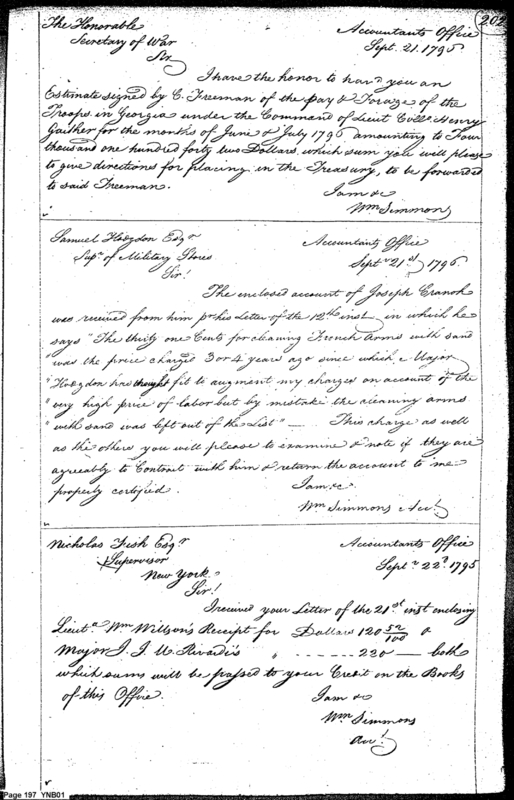 202
The Honorable Accountants Office
Secretary of War Sept. 21. 1796
Sir
I have the honor to hand you an
Estimate signed by C. Freeman of the pay & Forage of the
Troops in Georgia under the Command of Lieut Coll. Henry
Gaither for the months of June & July 1796 amounting to Four
thousand one hundred forty two Dollars, which sum you will please
to give directions for placing in the Treasury, to be forwarded
to said Freeman.
I am &c
Wm Simmons
Samuel Hodgdon Esqr Accountants Office
Supt of Military Stores Septr 21st 1796
Sir!
The enclosed account of Joseph Cranch
was received from him pr his Letter of the 12th inst in which he
says "The thirty one Cents for cleaning French Arms with sand
" was the price charged 3 or 4 years ago since which Major
" Hodgdon has thought fit to augment my charges on account of the
" very high price of labor but by mistake the cleaning arms
" with sand was left out of the List" — This charge as well
as the others you will please to examine & note if they are
agreeably to Contract with him & return the account to me
properly certified.
I am &c.
Wm Simmons Acct
Nicholas Fish Esqr Accountants Office
Supervisor Septr 22d 1795
New York
Sir!
I received your Letter of the 21st inst enclosing
Lieut Wm Willson's Receipt for Dollars 120 52/100 &
Major J. J. U. Rivardi's " ------ 220 — both
which sums will be passed to your Credit on the Books
of this Office.
I am &c
Wm Simmons
Acct
Page 197 YNB01